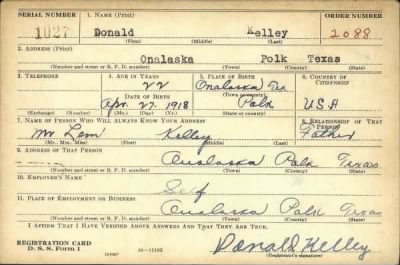 SERIAL NUMBER 1. NAME (Print) ORDER NUMBER
1027 Donald Kelley 2088
(First) (Middle) (Last)
2. ADDRESS (Print)
Onalaska Polk Texas
(Number and street or R. F. D. number) (Town) (County) (State)
3. TELEPHONE 4. AGE IN YEARS 5. PLACE OF BIRTH 6. COUNTRY OF CITIZENSHIP
22 Onalaska Tex
(Town or county)
DATE OF BIRTH
Apr. 27. 1918 Polk USA
(Exchange) (Number) (Mo.) (Day) (Yr.) (State or country)
7. NAME OF PERSON WHO WILL ALWAYS KNOW YOUR ADDRESS 8. RELATIONSHIP OF THAT PERSON
Mr Lem Kelley Father
(Mr., Mrs., Miss) (First) (Middle) (Last)
9. ADDRESS OF THAT PERSON
Onalaska Polk Texas
(Number and street or R. F. D. number) (Town) (County) (State)
10. EMPLOYER'S NAME
Self
11. PLACE OF EMPLOYMENT OR BUSINESS
Onalaska Polk Texas
(Number and street or R. F. D. number) (Town) (County) (State)
I AFFIRM THAT I HAVE VERIFIED ABOVE ANSWERS AND THAT THEY ARE TRUE.
REGISTRATION CARD
D. S. S. Form 1
16—17105
Donald Kelley
(Registrant's signature)